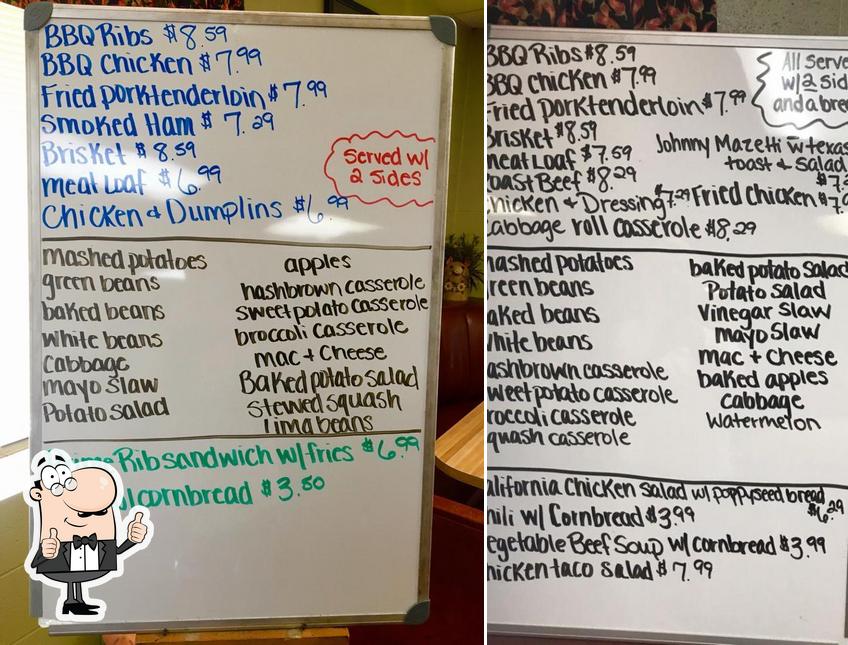 BBQ Ribs $8.59
BBQ Chicken $7.99
Fried porktenderloin $7.99
Smoked Ham $7.29
Brisket $8.59
meat Loaf $6.99
Chicken & Dumplins $6.99
Served w/
2 sides
mashed potatoes
green beans
baked beans
white beans
Cabbage
mayo slaw
Potato salad
apples
hashbrown casserole
sweet potato casserole
broccoli Casserole
mac + Cheese
Baked potato salad
Stewed squash
lima beans
Rib sandwich w/ fries $6.99
w/ cornbread $3.50
BBQ Ribs $8.59
BBQ chicken $7.99
Fried porktenderloin $7.99
Brisket $8.59
meat Loaf $7.59
oast Beef $8.29
hicken & Dressing $7.29
abbage roll casserole $8.29
All Serve
w/ 2 Sid
and a brea
Johnny Mazetti w texas
toast & salad
$7.
Fried chicken $7.
mashed potatoes
reen beans
aked beans
white beans
ashbrown casserole
weet potato casserole
roccoli casserole
quash casserole
baked potato salad
Potato salad
Vinegar Slaw
mayo slaw
mac + cheese
baked apples
cabbage
Watermelon
alifornia Chicken salad w/ poppyseed bread
$6.29
hili w/ Cornbread $3.99
egetable Beef Soup w/ cornbread $3.99
hicken taco salad $7.99